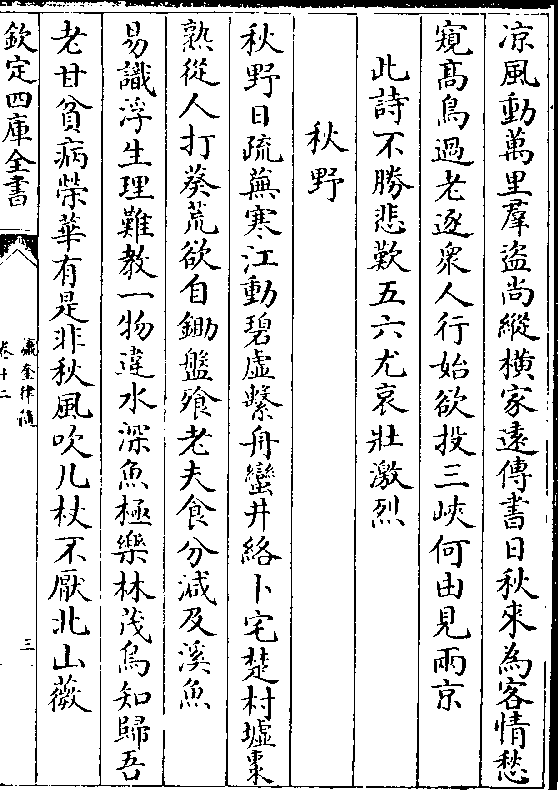 凉風動萬里羣盗尚縱横家遠傳書日秋來為客情愁
窺髙鳥過老逐衆人行始欲投三峽何由見兩京
此詩不勝悲歎五六尤哀壯激烈
秋野
秋野日疏蕪寒江動碧虚繫舟蠻井絡卜宅楚村墟棗
熟從人打葵荒欲自鋤盤飱老夫食分減及溪魚
易識浮生理難教一物違水深魚極樂林茂鳥知歸吾
老甘貧病榮華有是非秋風吹几杖不厭北山薇
欽定四庫全書
瀛奎律髓
卷十二
三